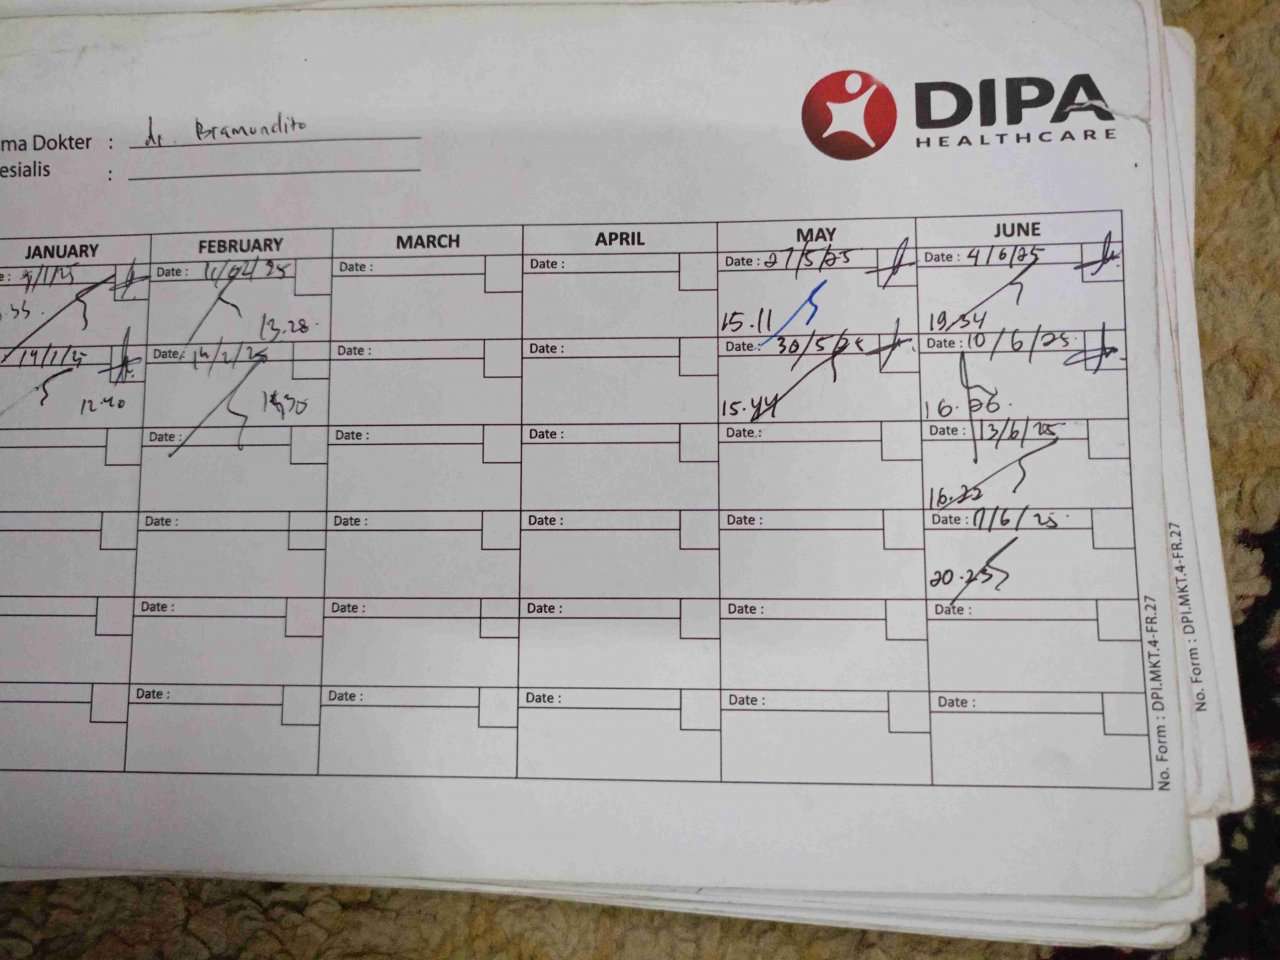 DIPA
HEALTHCARE
ma Dokter : dr. Bramundito
esialis :
JANUARY FEBRUARY MARCH APRIL MAY JUNE
e : 9/1/25 Date : 11/02/25 Date : Date : Date : 27/5/25 Date : 4/6/25
.55. 13.28. 15.11 19.34
14/1/25 Date : 14/2/25 Date : Date : Date : 30/5/25 Date : 10/6/25
12.40 15.44 16.26.
Date : Date : Date : Date : Date : 13/6/25
16.22
Date : Date : Date : Date : Date : 17/6/25
20.25
Date : Date : Date : Date : Date :
Date : Date : Date : Date : Date :
No. Form : DPI.MKT.4-FR.27
No. Form : DPI.MKT.4-FR.27